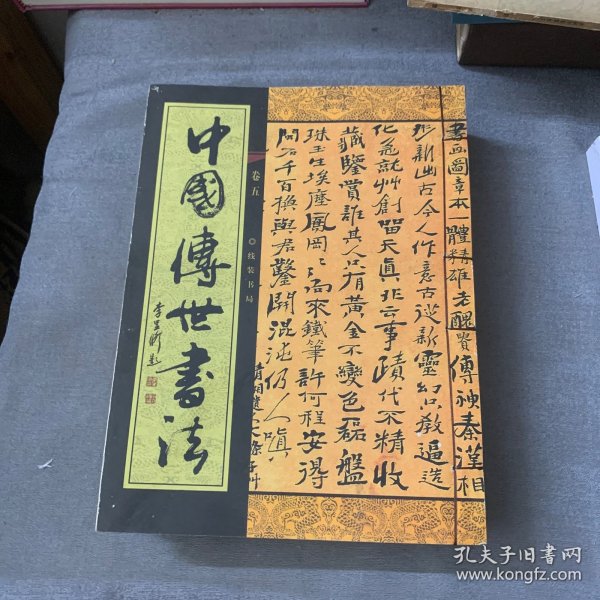 中國傳世書法
李
卷五
线装书局
書画圖章本一體精雄老醜貴傳神秦漢相
形新出古今人作意古從新靈幻只教逼造
化急就艸創留天真非云事蹟代不精收
藏鑒賞誰其人只有黃金不變色磊盤
珠玉生埃塵風岡來鐵筆許何程安得
石千百換與君鑿開混沌仍人嗔
孔夫子旧书网
www.kongfz.com